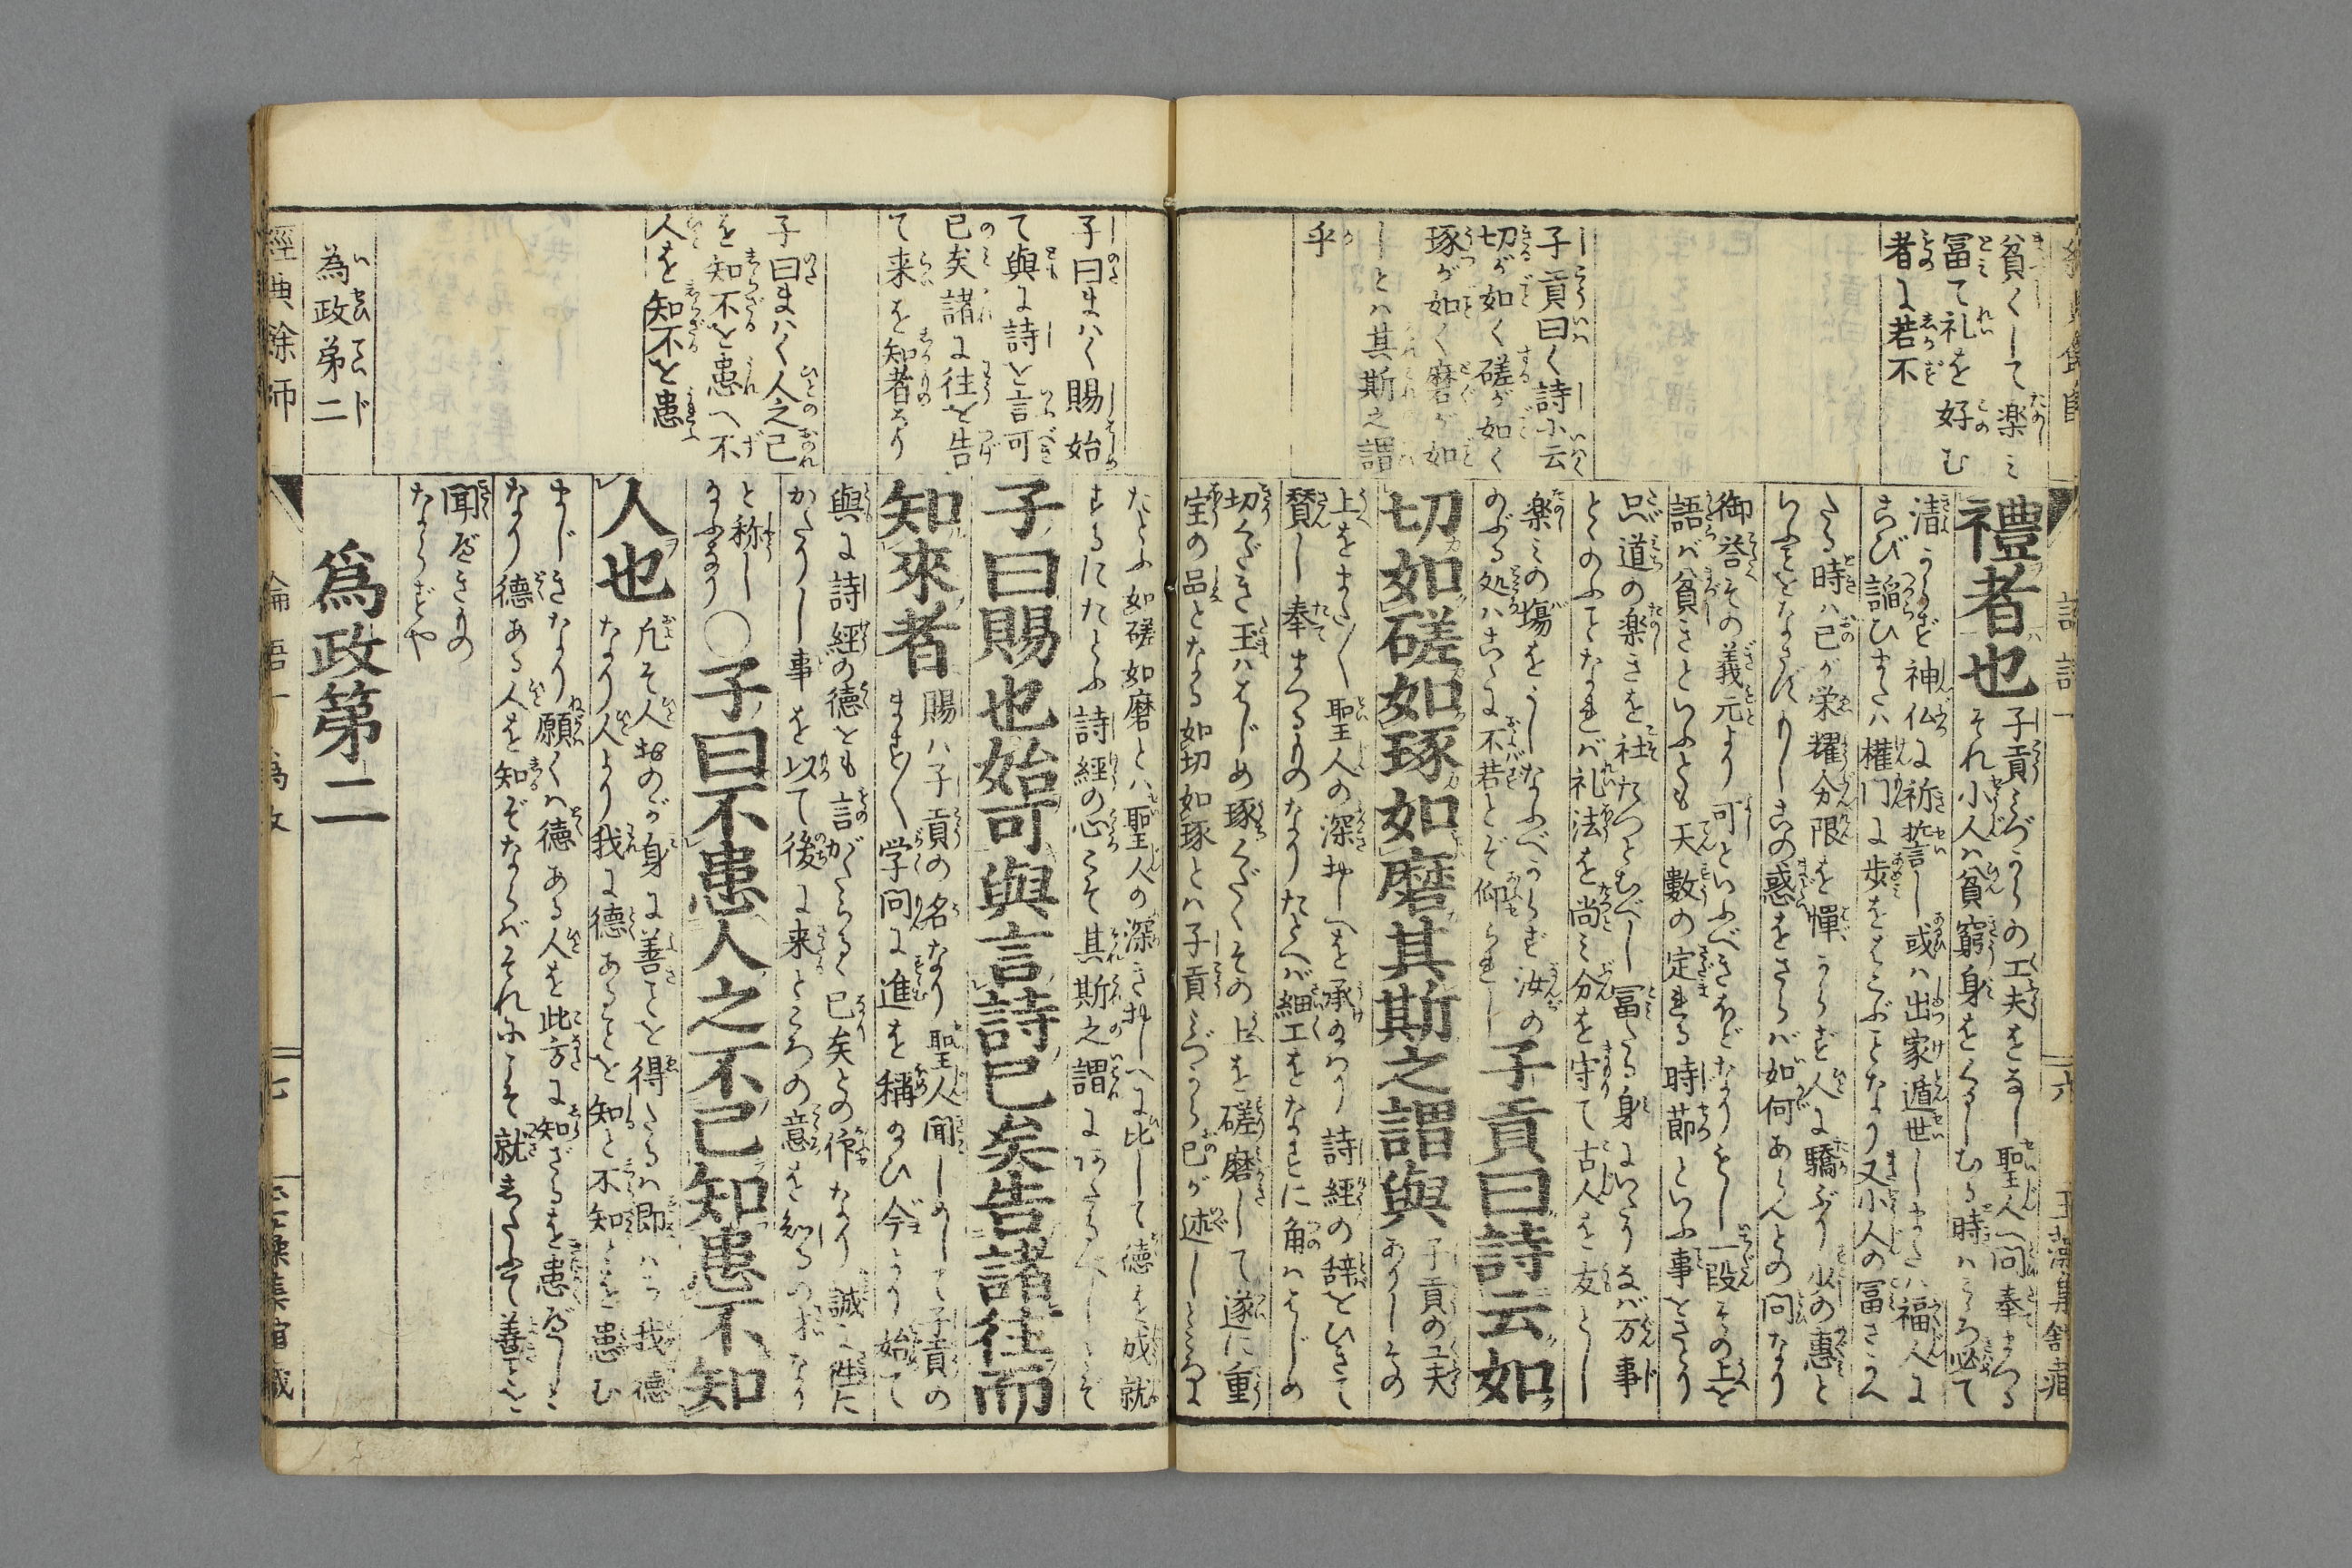 貧くして楽み
冨て礼を好む
者に若不
禮者也
子貢みづからの工夫をなし聖人へ問奉まつる
それ小人は貧窮身をくるしむる時はこゝろ必て
清からず神仏に祈誓し或は出家遁世しまたは福人に
こび諂ひまたは權門に歩をはこぶことなり又小人の冨さかへ
たる時は己が栄耀分限を憚からず人に驕ぶり少の惠と
御答その義元より可といふべきほどなりとし一段その上を
語ば貧きといふとも天數の定まる時節といふ事をさとり
只道の楽きを社たつとむべし冨たる身にいたりなば万事
とゝのふことなれば礼法を尚み分を守て古人を友とし
子貢曰く詩に云
切が如く磋が如く
琢が如く磨が如
しとは其斯之謂
乎
楽みの塲をうしなふべからず汝の
のぶる処はこゝに不若とぞ仰られし
子貢曰詩云如
切如磋如琢如磨其斯之謂與
子貢の工夫
ありしその
上をまた〳〵聖人の深おしへを承給はり詩經の辞をひきて
賛し奉まつるものなりたとへば細工をなすに角ははじめ
切くだき玉ははじめ琢くだくその上を磋磨して遂に重
宝の品となる如切如琢とは子貢みづから己が述しところに
たとふ如磋如磨とは聖人の深きおしへに比して徳を成就
するにたとふ詩經の心こそ其斯之謂にあたるべしとぞ
子曰まはく賜始
て與に詩を言可
已矣諸に往を告
て来を知者なり
子曰賜也始可與言詩已矣告諸往而
知來者
賜は子貢の名なり聖人聞しめして子貢の
ます〳〵学問に進を稱給ひ今より始て
與に詩經の徳とも言がたらるく已矣との作なり誠に往た
かたりし事を以て後に来ところの意を知るの才なり
と称し
給ふなり
子曰まはく人之己
を知不を患へ不
人を知不を患
〇子曰不患人之不己知患不知
人也
凡そ人おのが身に善ことを得たるは即はち我徳
なり人より我に德あることを知と不知とを患む
まじきなり願くは德ある人を此方に知ざるを患べしと
なり徳ある人を知ぞならばそれにこそ就したふて善ことを
聞べきもの
ならずや
為政第二
爲政第二
經典除師